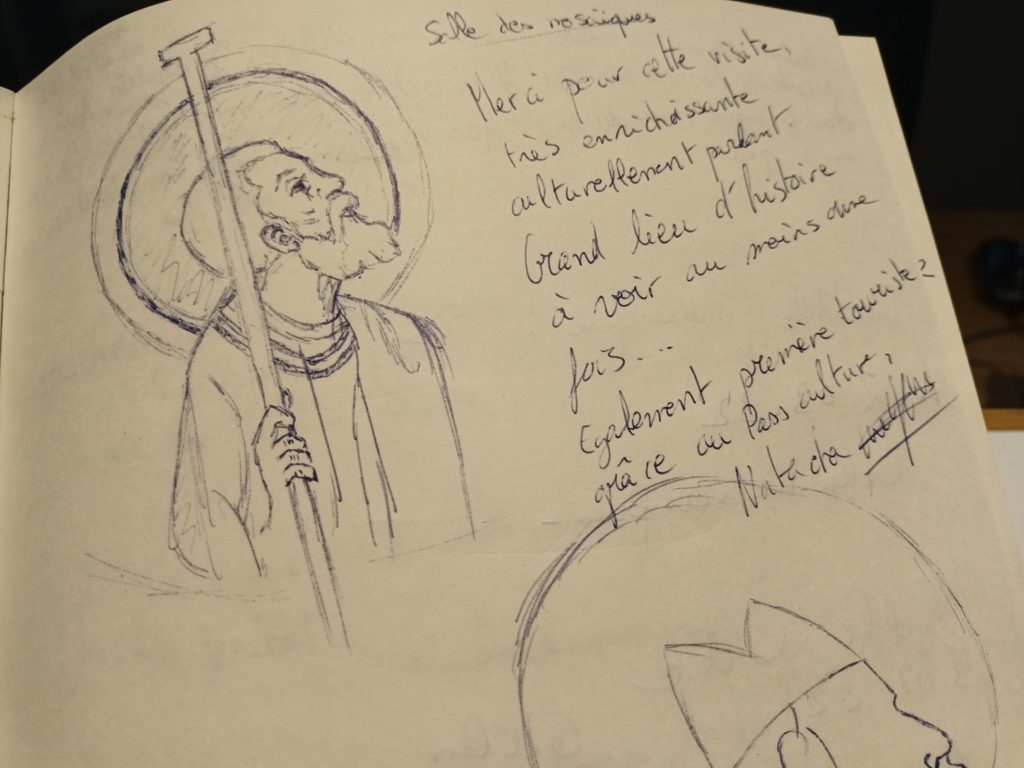 Salle des mosaïques
Merci pour cette visite,
très enrichissante
culturellement parlant.
Grand lieu d'histoire
à voir au moins une
fois...
Egalement première touriste
grâce au Pass culture,